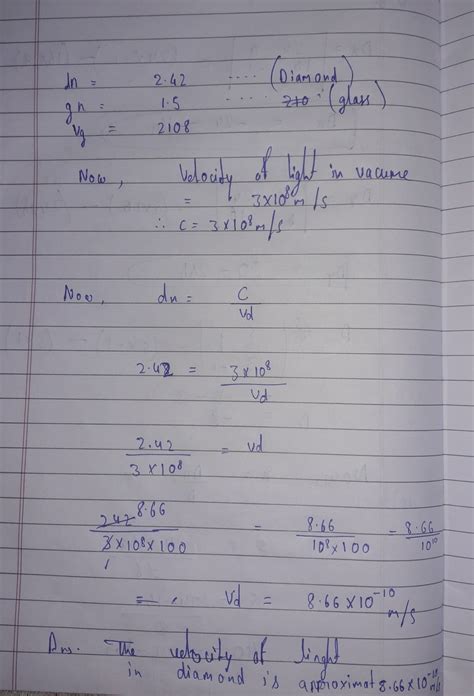 dn = 2.42 .... (Diamond)
gn = 1.5 .... 210 (glass)
vg = 2108
Now, Velocity of light in vacume
= 3×10⁸ m/s
∴ C = 3×10⁸ m/s
Now, dn = C / Vd
2.42 = 3×10⁸ / Vd
2.42 / 3×10⁸ = Vd
242 8.66 / 3×10⁸×100 = 8.66 / 10⁸×100 = 8.66 / 10¹⁰
= Vd = 8.66×10⁻¹⁰ m/s
Ans. The velocity of linght
in diamond is approximat 8.66×10⁻¹⁰ m/s